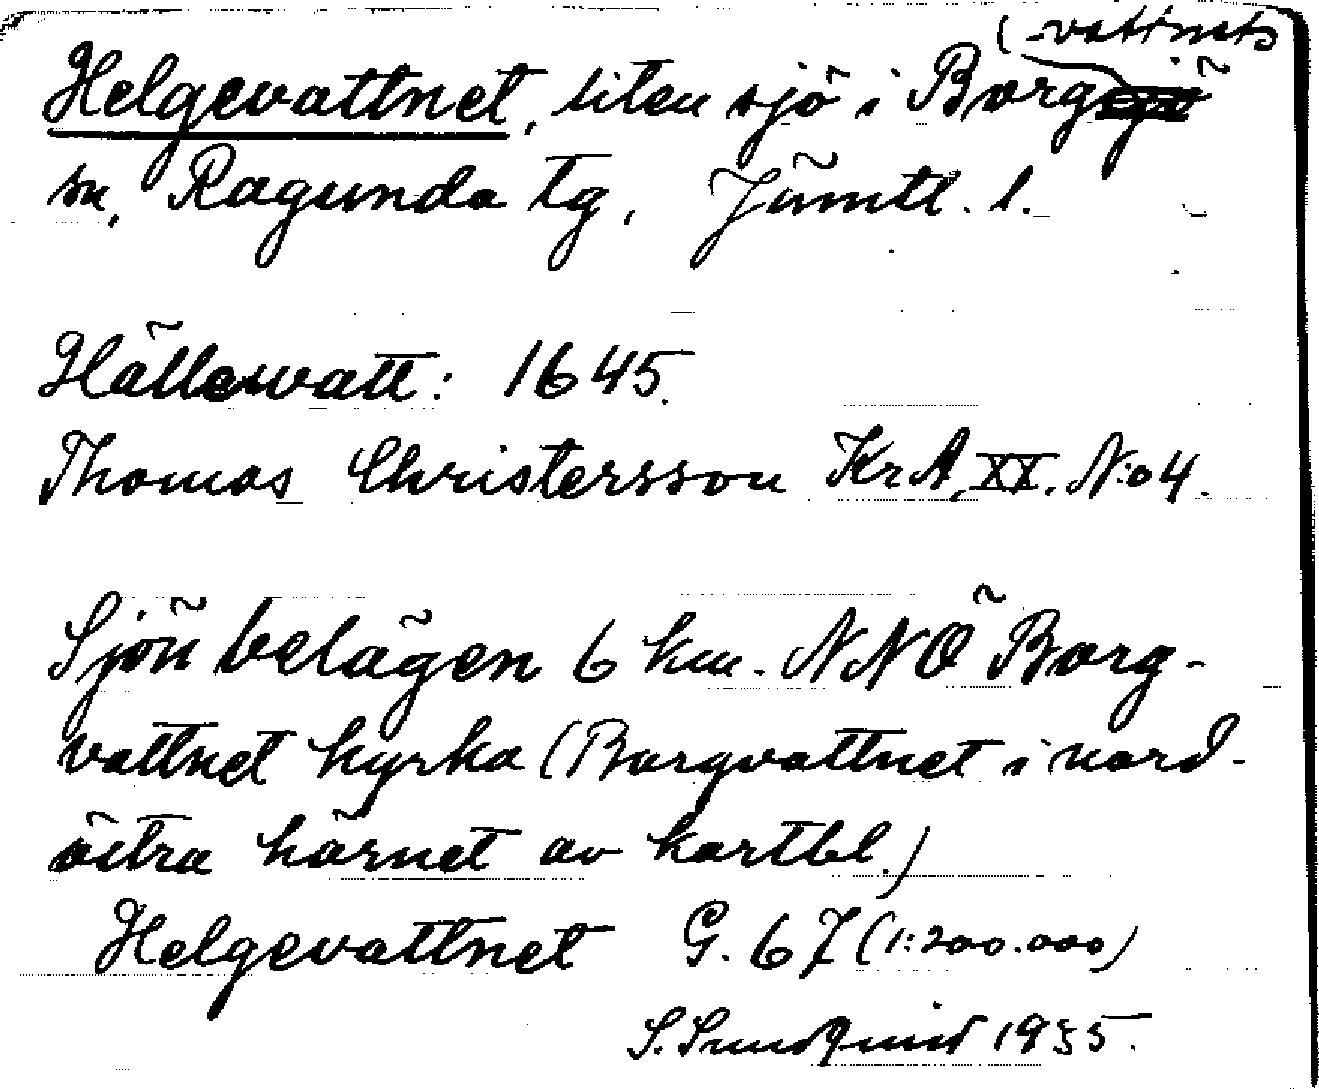 (-vattnets
Helgevattnet, liten sjö i Borgsjö
sn, Ragunda tg, Jämtl. l.
Hällewatt: 1645.
Thomas Christersson KrA, XX. N:o 4.
Sjön belägen 6 km. NNÖ Borg-
vattnet kyrka (Borgvattnet i nord-
östra hörnet av kartbl.)
Helgevattnet G. 67 (1:200.000)
S. Sundquist 1935.